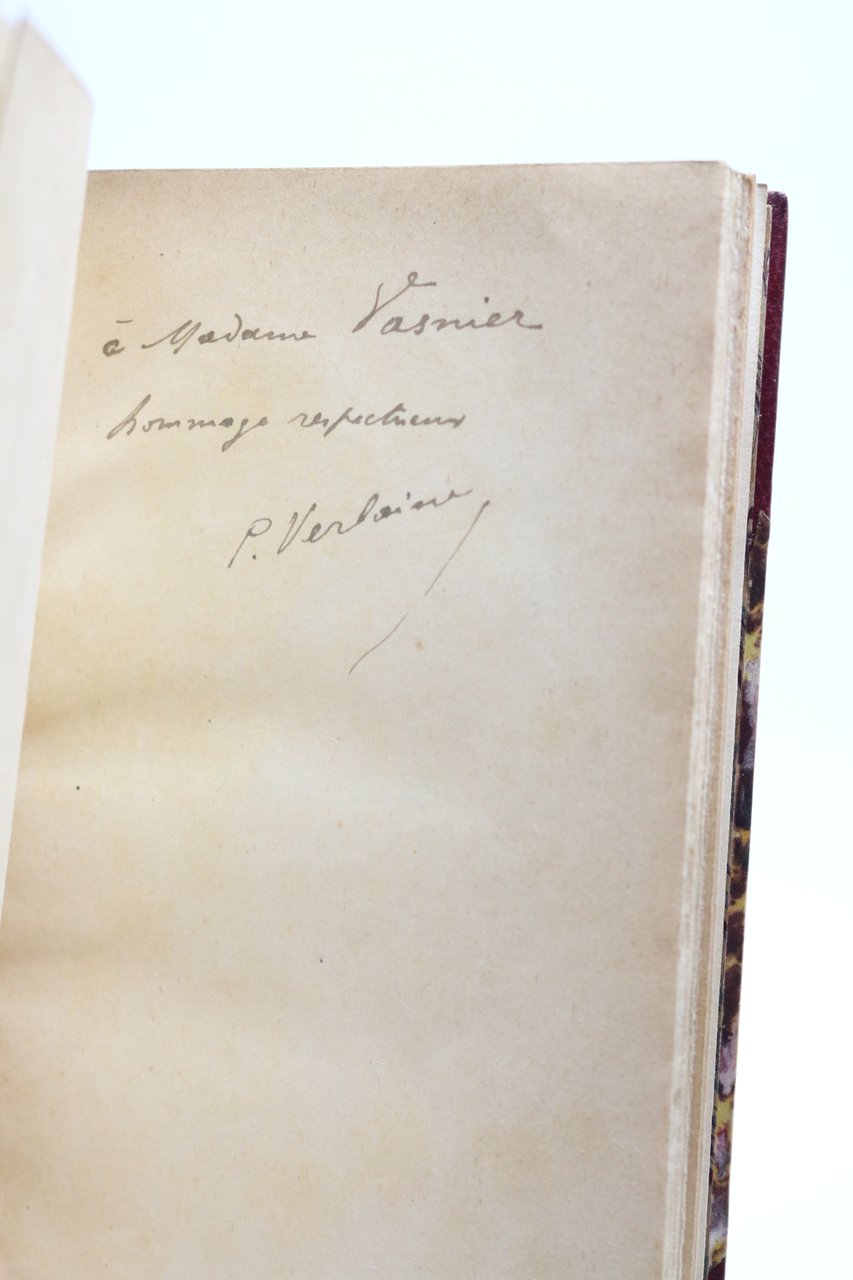 à Madame Vasnier
hommage respectueux
P. Verlaine